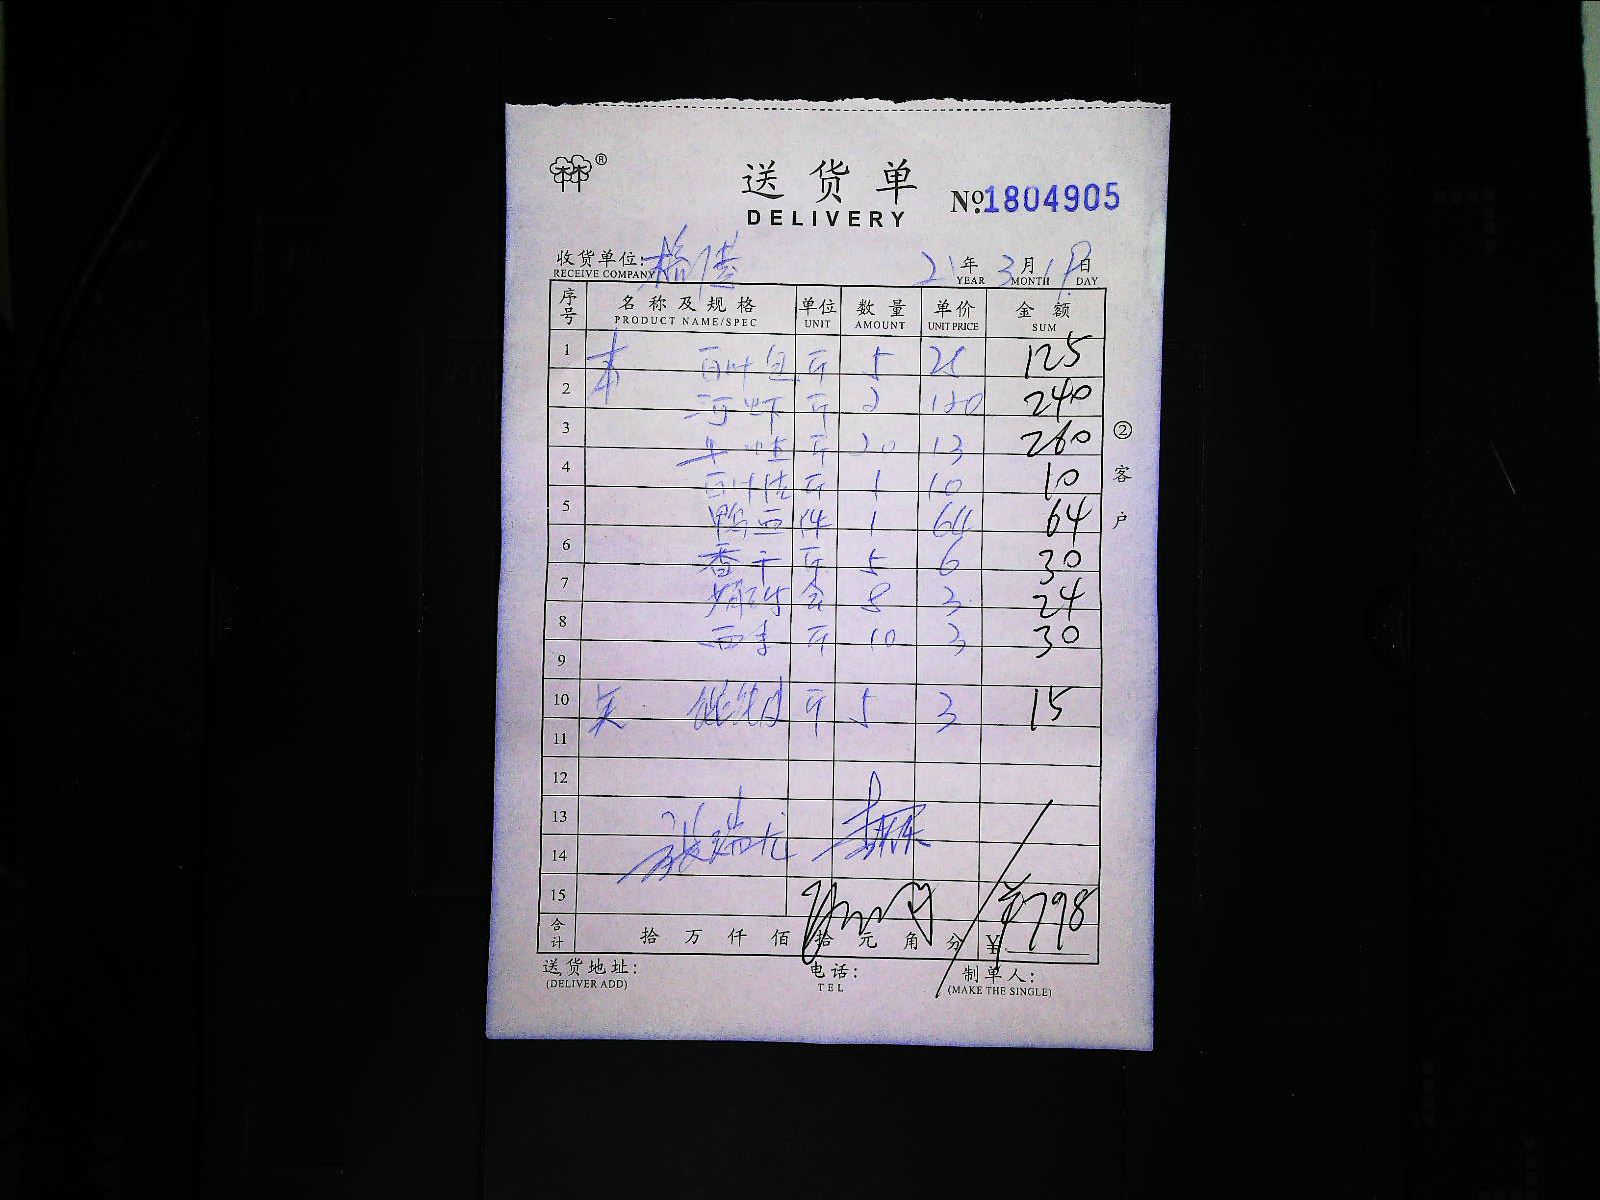 ®
送货单
DELIVERY
№:1804905
收货单位:
RECEIVE COMPANY
21年 3月19日
YEAR MONTH DAY
序号 名称及规格 单位 数量 单价 金额
PRODUCT NAME/SPEC UNIT AMOUNT UNIT PRICE SUM
1 本 百叶包 斤 5 25 125
2 河虾 斤 2 120 240
3 斤 20 13 260
4 百叶结 斤 1 10 10
5 鸭血 件 1 64 64
6 香干 斤 5 6 30
7 盒 8 3 24
8 西芹 斤 10 3 30
9
10 斤 5 3 15
11
12
13
14 张瑞龙
15 ¥798
合计 拾 万 仟 佰 拾 元 角 分 ¥
②客户
送货地址: 电话: 制单人:
(DELIVER ADD) TEL (MAKE THE SINGLE)